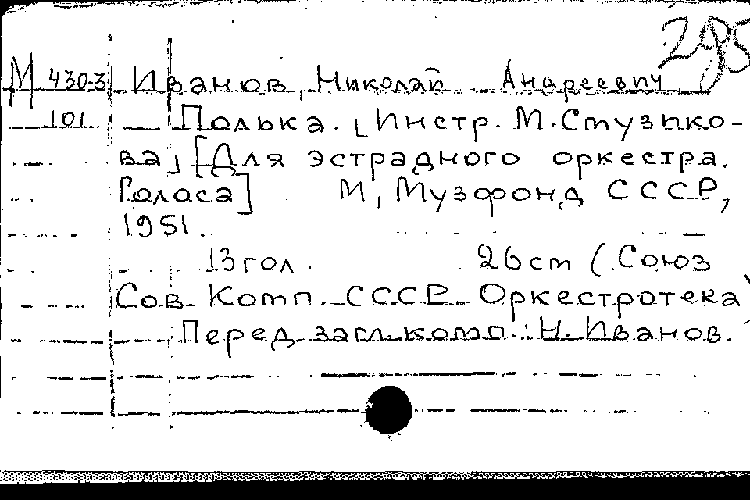 295
М 430-3 Иванов, Николай Андреевич
101 Полька. [Инстр. М. Стузыко-
ва] [Для эстрадного оркестра.
Голоса] М, Музфонд СССР,
1951.
13 гол. 26 cm (Союз
Сов Комп. СССР Оркестротека)
Перед загл. комп.: Н. Иванов.